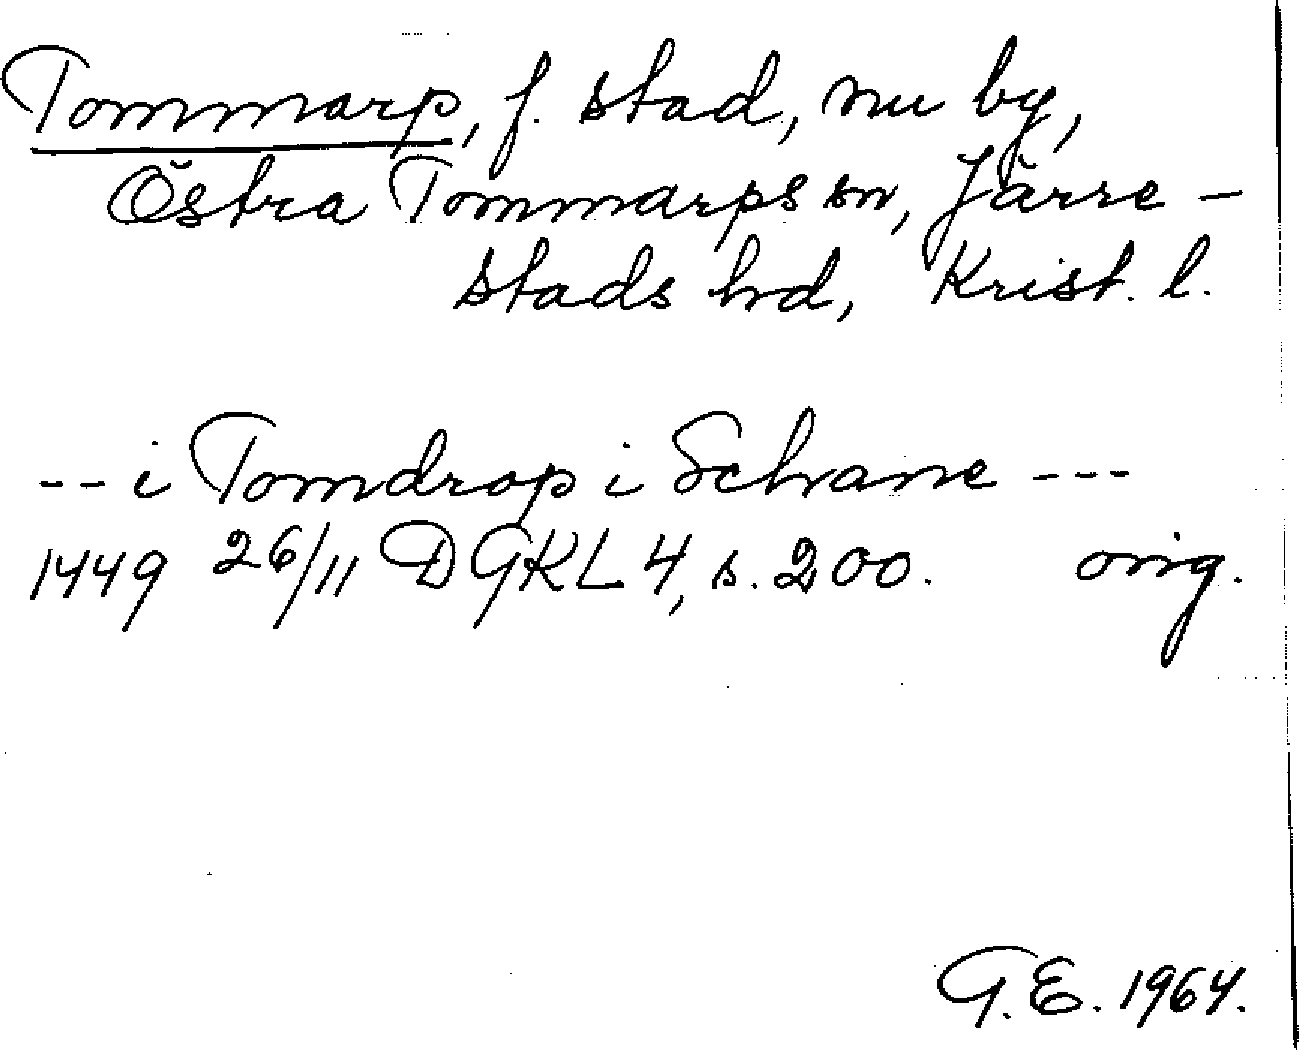 Tommarp, f. stad, nu by,
Östra Tommarps sn, Järre-
stads hd, Krist. l.
-- i Tomdrop i Schane ---
1449 26/11 DGKL 4, s. 200. orig.
G.E. 1964.